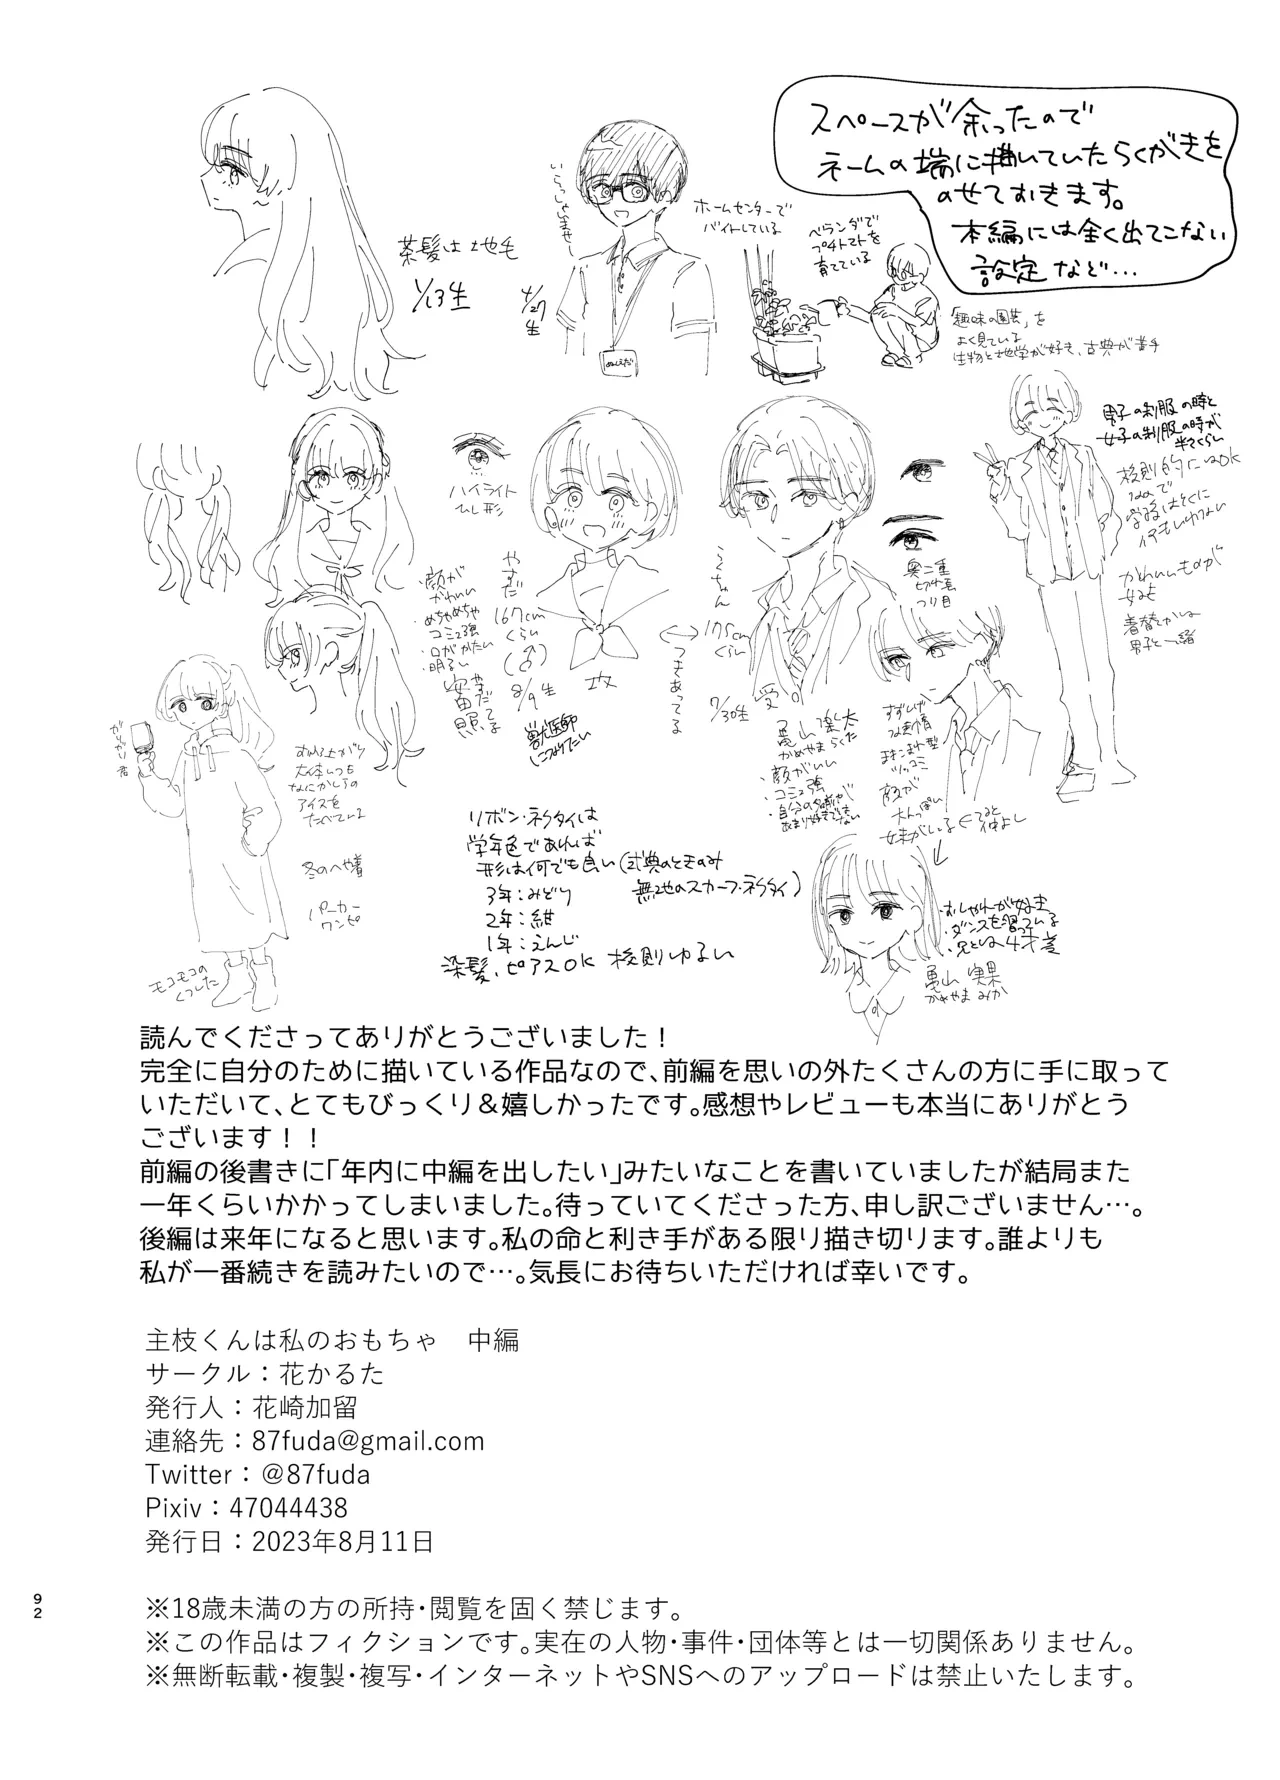 スペースが余ったので
ネームの端に描いていたらくがきを
のせておきます。
本編には全く出てこない
設定など…
茶髪は地毛
1/13生
いらっしゃいませー
4/27
生
ホームセンターで
バイトしている
ベランダで
プチトマトを
育てている
「趣味の園芸」を
よく見ている
生物と地学が好き、古典が苦手
男子の制服の時と
女子の制服の時が
半々くらい
校則的にはOK
なので
学校はとくに
何もいわない
かわいいものが
好き
着替えとかは
男子と一緒
ハイライト
ひし形
やすだ
167cm
くらい
(♂)
8/9生
攻
獣医師
になりたい
・顔が
かわいい
・めちゃめちゃ
コミュ強
・口がかたい
・明るい
安田
照
つきあってる
らくちゃん
175cm
くらい
7/30生
受
亀山楽太
かめやまらくた
・顔がいい
・コミュ強
・自分の名前が
あまり好きではない
奥二重
切れ長
つり目
まきこまれ型
ツッコミ
顔が
大人っぽい
妹がいる
・おしゃれが好き
・ダンスを習っている
・兄とは4才差
亀山 実果
かめやま みか
ガリガリ君
お風呂上がり
大体いつも
なにかしらの
アイスを
たべている
冬のへや着
パーカー
ワンピ
モコモコの
くつした
リボン・ネクタイは
学年色であれば
形は何でも良い(式典のときのみ
無地のスカーフ・ネクタイ)
3年:みどり
2年:紺
1年:えんじ
染髪、ピアスOK 校則ゆるい
読んでくださってありがとうございました！
完全に自分のために描いている作品なので、前編を思いの外たくさんの方に手に取って
いただいて、とてもびっくり＆嬉しかったです。感想やレビューも本当にありがとう
ございます！！
前編の後書きに「年内に中編を出したい」みたいなことを書いていましたが結局また
一年くらいかかってしまいました。待っていてくださった方、申し訳ございません…。
後編は来年になると思います。私の命と利き手がある限り描き切ります。誰よりも
私が一番続きを読みたいので…。気長にお待ちいただければ幸いです。
主枝くんは私のおもちゃ　中編
サークル：花かるた
発行人：花崎加留
連絡先：87fuda@gmail.com
Twitter：@87fuda
Pixiv：47044438
発行日：2023年8月11日
※18歳未満の方の所持・閲覧を固く禁じます。
※この作品はフィクションです。実在の人物・事件・団体等とは一切関係ありません。
※無断転載・複製・複写・インターネットやSNSへのアップロードは禁止いたします。
92